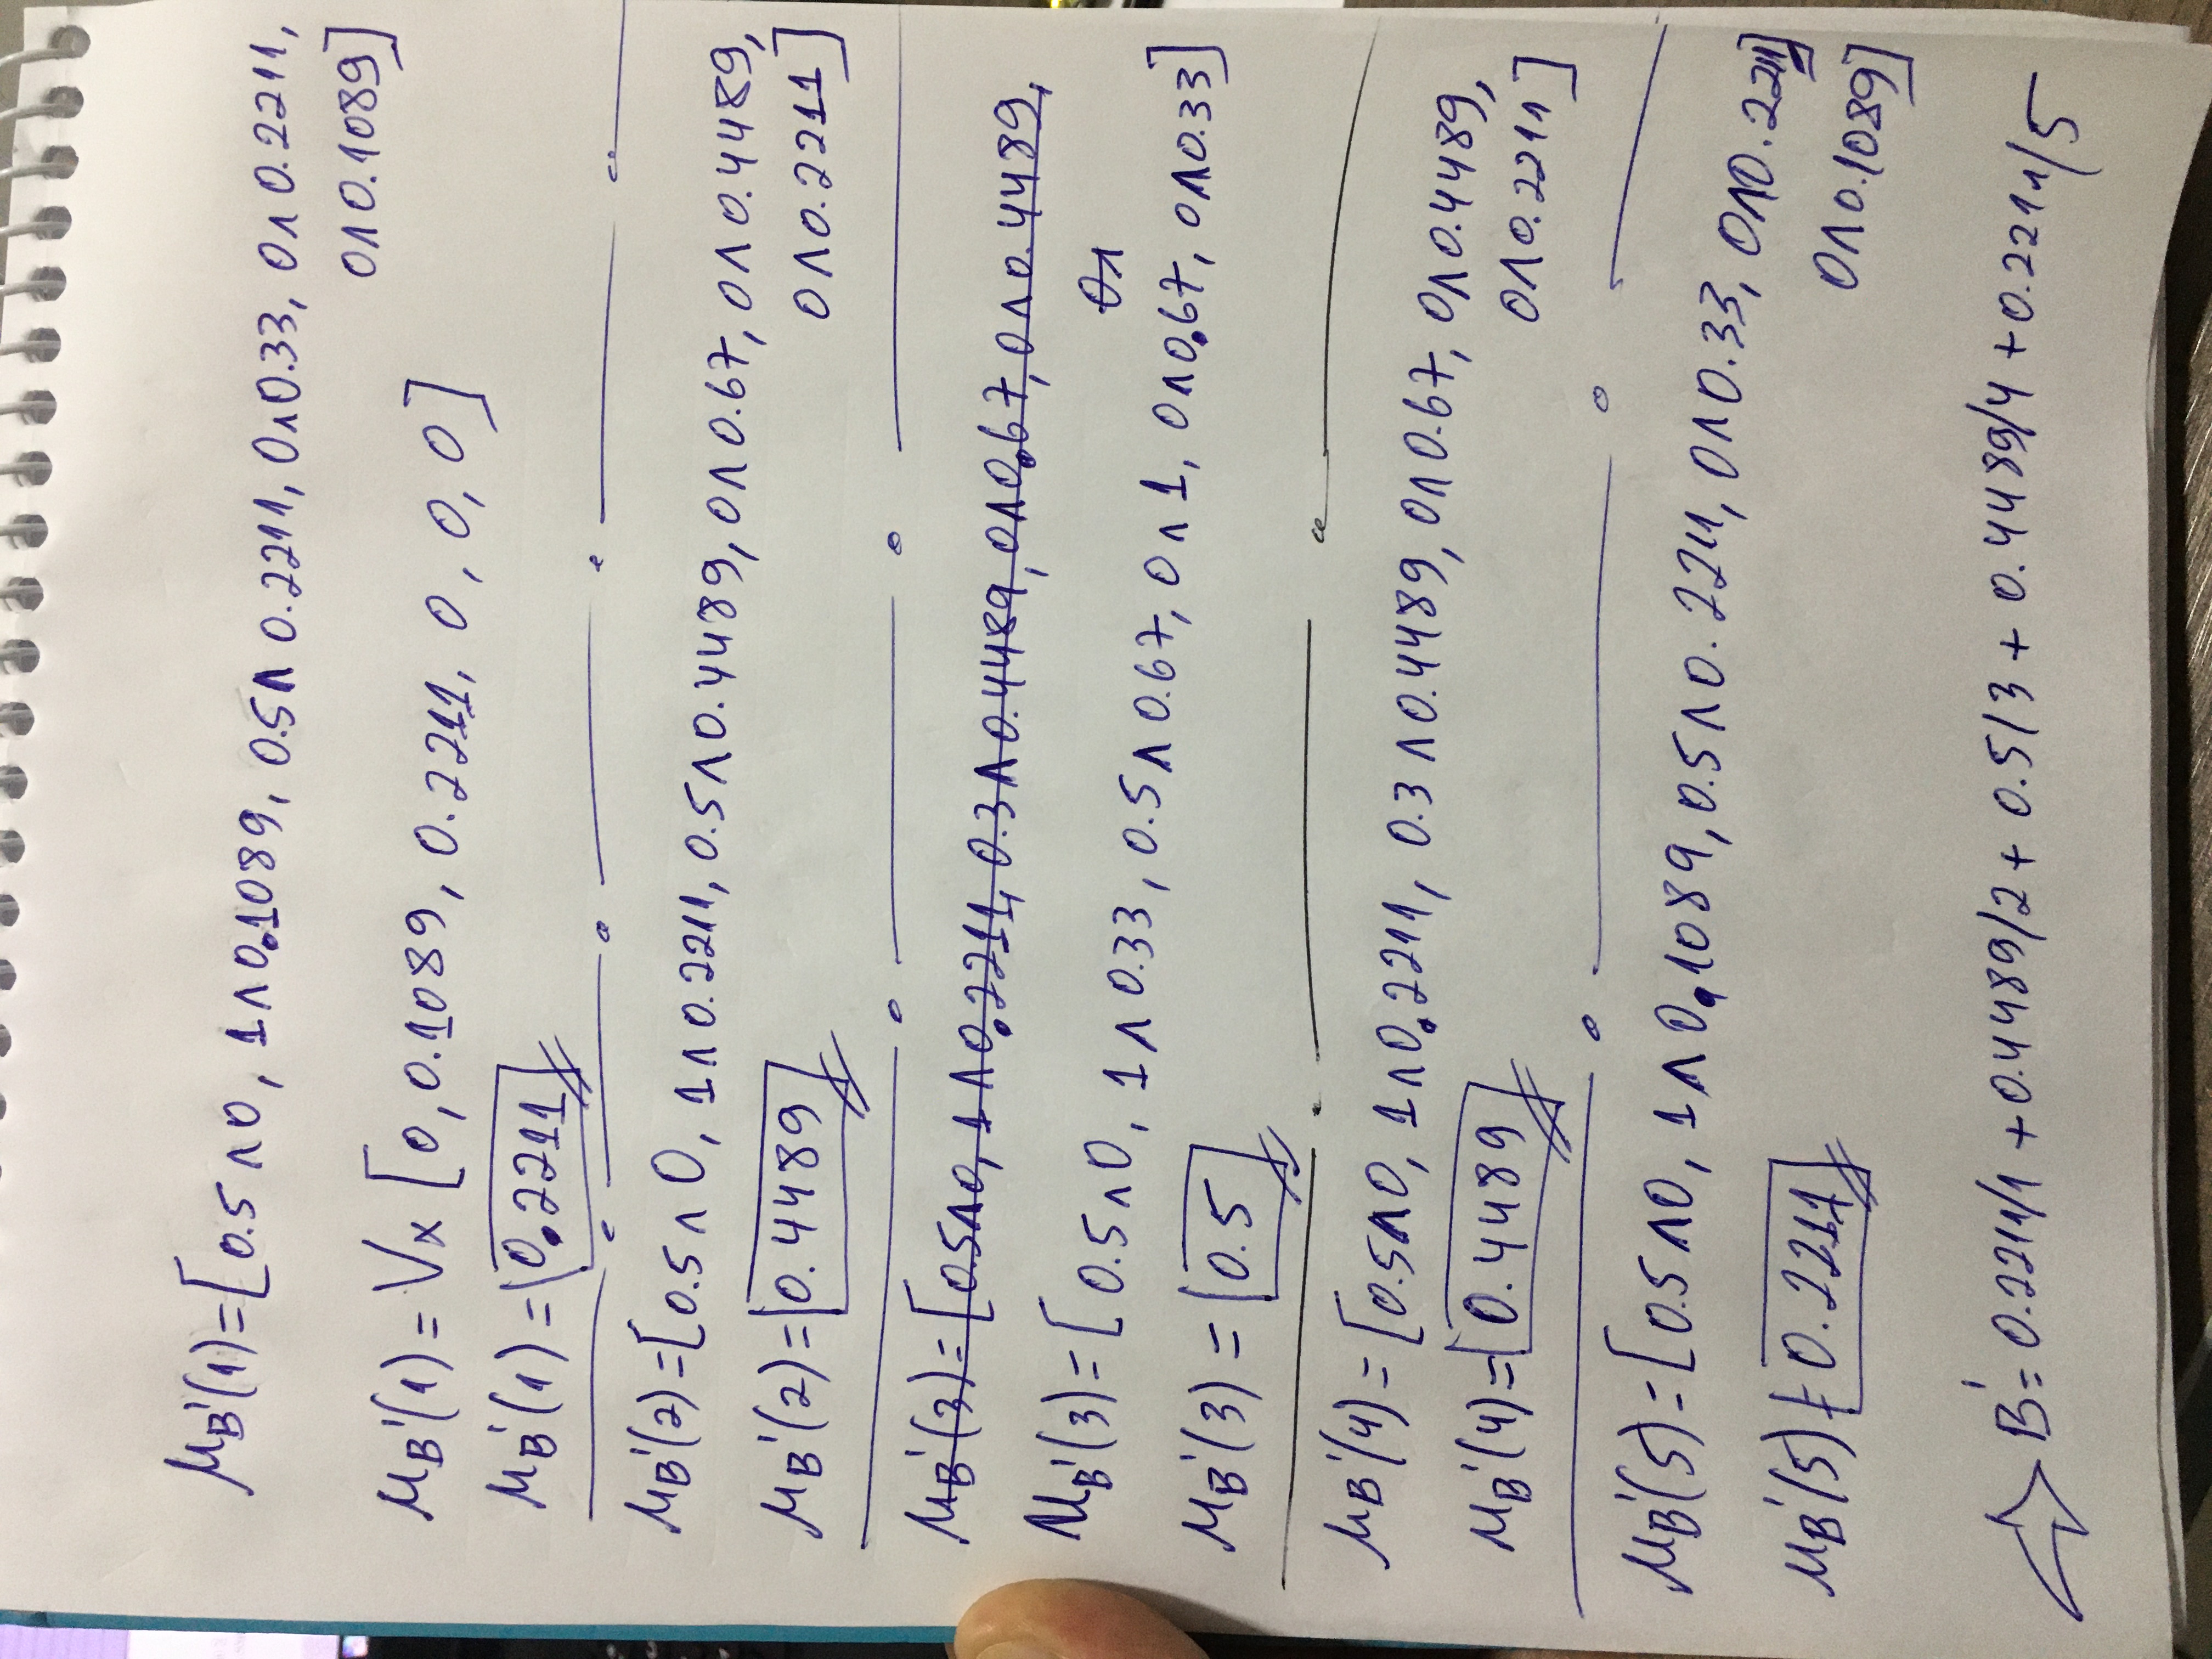 μB'(1)=[0.5∧0, 1∧0.1089, 0.5∧0.2211, 0∧0.33, 0∧0.2211,
0∧0.1089]
μB'(1)= Vx [0, 0.1089, 0.2211, 0, 0, 0]
μB'(1)= 0.2211
μB'(2)=[0.5∧0, 1∧0.2211, 0.5∧0.4489, 0∧0.67, 0∧0.4489,
0∧0.2211]
μB'(2)= 0.4489
μB'(3)=[0.5∧0, 1∧0.2211, 0.3∧0.4489, 0∧0.67, 0∧0.4489,
0∧
μB'(3)=[0.5∧0, 1∧0.33, 0.5∧0.67, 0∧1, 0∧0.67, 0∧0.33]
μB'(3) = 0.5
μB'(4)=[0.5∧0, 1∧0.2211, 0.3∧0.4489, 0∧0.67, 0∧0.4489,
0∧0.2211]
μB'(4)= 0.4489
μB'(5)=[0.5∧0, 1∧0.1089, 0.5∧0.2211, 0∧0.33, 0∧0.2211]
0∧0.1089]
μB'(5)= 0.2211
⇒ B'= 0.2211/1 + 0.4489/2 + 0.5/3 + 0.4489/4 + 0.2211/5